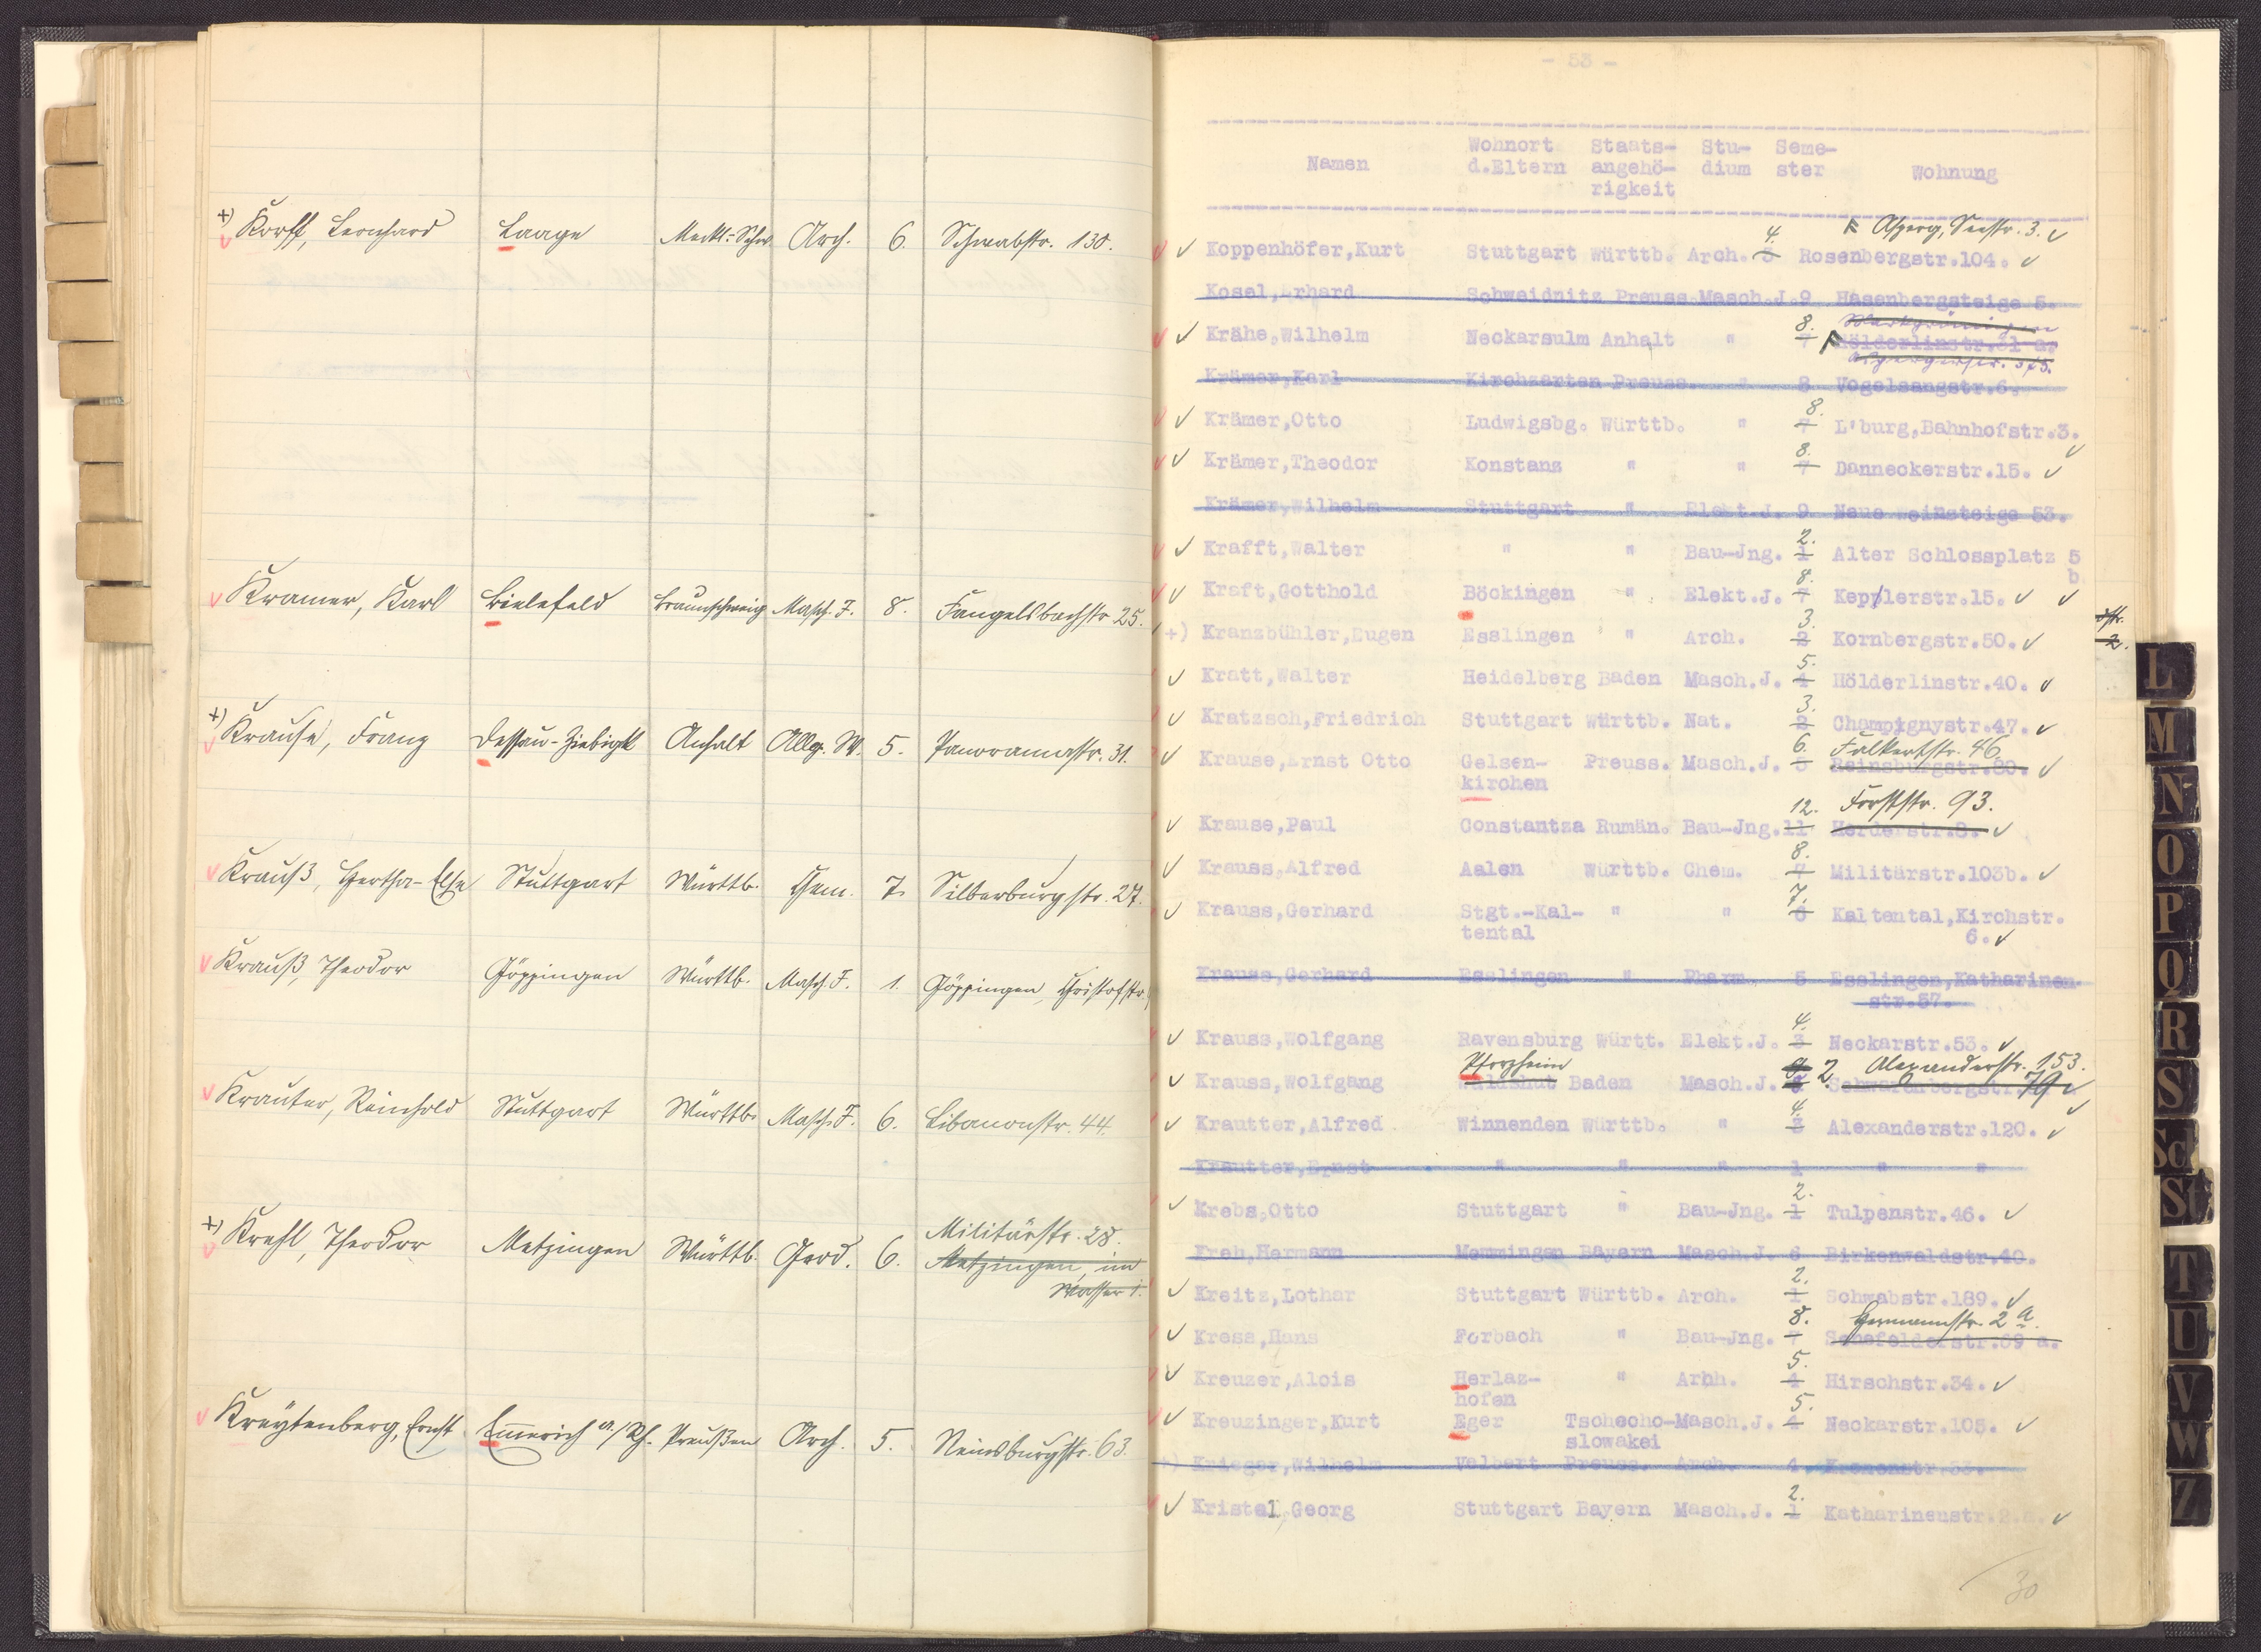 +) Korff, Leonhard Laage Meckl.-Schw. Arch. 6. Schwabstr. 130.
Kramer, Karl Bielefeld Braunschweig Masch. J. 8. Fangelsbachstr. 25.
+) Krause, Franz Dessau-Ziebigk Anhalt Allg. W. 5. Panoramastr. 31.
Krauß, Hertha-Else Stuttgart Württb. Chem. 7. Silberburgstr. 27.
Krauß, Theodor Göppingen Württb. Masch. J. 1. Göppingen, Christofstr.
Krauter, Reinhold Stuttgart Württb. Masch. J. 6. Libanonstr. 44.
Militärstr. 28.
+) Krehl, Theodor Metzingen Württb. Geod. 6. Metzingen, im
Wasser 1.
Kreytenberg, Ernst Emmerich a/Rh. Preußen Arch. 5. Reinsburgstr. 63.
- 53 -
Namen Wohnort d.Eltern Staats-angehö-rigkeit Stu-dium Seme-ster Wohnung
4. Asperg, Seestr. 3.
Koppenhöfer,Kurt Stuttgart Württb. Arch. 3 Rosenbergstr.104.
Kosel,Erhard Schweidnitz Preuss.Masch.J.9 Hasenbergsteige 5.
8. Markgröningen
Krähe,Wilhelm Neckarsulm Anhalt " 7 Hölderlinstr.31 a.
Krämer,Karl Kirchzarten Preuss. " 8 Vogelsangstr.6.
8.
Krämer,Otto Ludwigsbg. Württb. " 7 L'burg,Bahnhofstr.3.
8.
Krämer,Theodor Konstanz " " 7 Danneckerstr.15.
Krämer,Wilhelm Stuttgart " Elekt.J. 9 Neue Weinsteige 53.
2.
Krafft,Walter " " Bau-Jng. 1 Alter Schlossplatz 5
b
8.
Kraft,Gotthold Böckingen " Elekt.J. 7 Keplerstr.15.
3.
+) Kranzbühler,Eugen Esslingen " Arch. 2 Kornbergstr.50.
5.
Kratt,Walter Heidelberg Baden Masch.J. 4 Hölderlinstr.40.
3.
Kratzsch,Friedrich Stuttgart Württb. Nat. 2 Champignystr.47.
6. Falkertstr. 46
Krause,Ernst Otto Gelsen- Preuss. Masch.J. 5 Reinsburgstr.80.
kirchen
12. Forststr. 93.
Krause,Paul Constantza Rumän. Bau-Jng.11 Herderstr.8.
8.
Krauss,Alfred Aalen Württb. Chem. 7 Militärstr.103b.
7.
Krauss,Gerhard Stgt.-Kal- " " 6 Kaltental,Kirchstr.
tental 6.
Krauss,Gerhard Esslingen " Pharm. 5 Esslingen,Katharinen-
str.57.
4.
Krauss,Wolfgang Ravensburg Württ. Elekt.J. 3 Neckarstr.53.
Pforzheim 2. Alexanderstr. 153.
Krauss,Wolfgang Waldshut Baden Masch.J.
4.
Krautter,Alfred Winnenden Württb. " 3 Alexanderstr.120.
Krautter,Ernst " " " 1 " "
2.
Krebs,Otto Stuttgart " Bau-Jng. 1 Tulpenstr.46.
Kreh,Hermann Memmingen Bayern Masch.J. 6 Birkenwaldstr.40.
2.
Kreitz,Lothar Stuttgart Württb. Arch. 1 Schwabstr.189.
8. Hermannstr. 2 a.
Kress,Hans Forbach " Bau-Jng. 7 Senefelderstr.69 a.
5.
Kreuzer,Alois Herlaz- " Arhh. 4 Hirschstr.34.
hofen
5.
Kreuzinger,Kurt Eger Tschecho-Masch.J. 4 Neckarstr.105.
slowakei
+) Krieger,Wilhelm Velbert Preuss. Arch. 4 Kronenstr.33.
2.
Kristel,Georg Stuttgart Bayern Masch.J. 1 Katharinenstr.2.
30
L
M
N
O
P
Q
R
S
Sch
St
T
U
V
W
Z